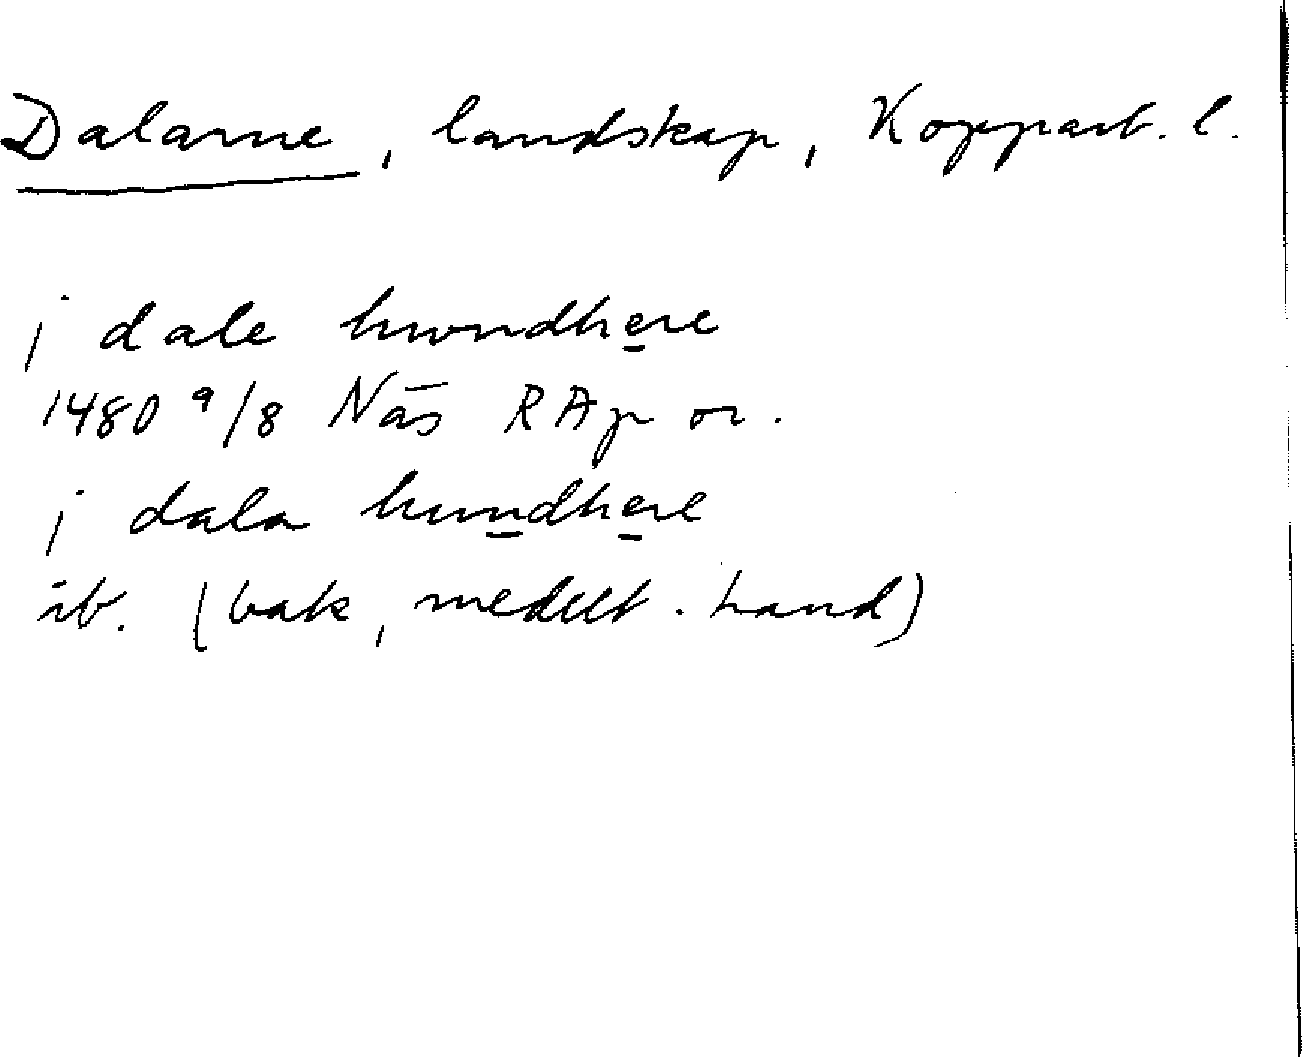 Dalarne, landskap, Kopparb. l.
j dale hwndhere
1480 9/8 Näs RAp or.
j dala hwndhere
ib. (bak, medelt. hand)